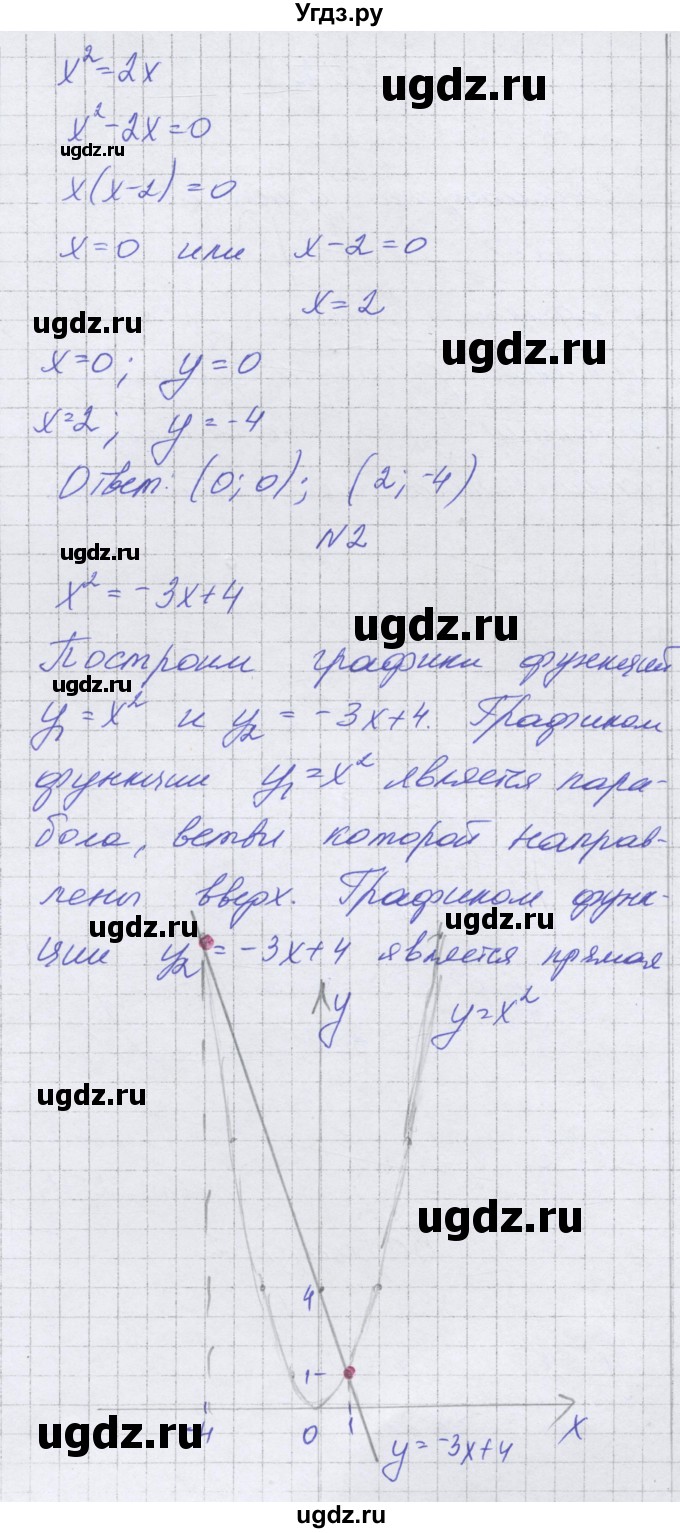 Угдз.ру
x² = 2x
ugdz.ru
x² - 2x = 0
ugdz.ru
x(x-2) = 0
x = 0 или x - 2 = 0
x = 2
ugdz.ru
ugdz.ru
x=0; y = 0
x=2; y = -4
Ответ: (0; 0); (2; -4)
N2
ugdz.ru
x² = -3x+4
ugdz.ru
Построим графики функций
ugdz.ru
y₁ = x² и y₂ = -3x+4. Графиком
функции y₁ = x² является пара-
бола, ветви которой направ-
лены вверх. Графиком функ-
ugdz.ru
ugdz.ru
ции y₂ = -3x+4 является прямая
y
y = x²
ugdz.ru
ugdz.ru
4
1
-4
0
1
x
ugdz.ru
y = -3x+4
ugdz.ru